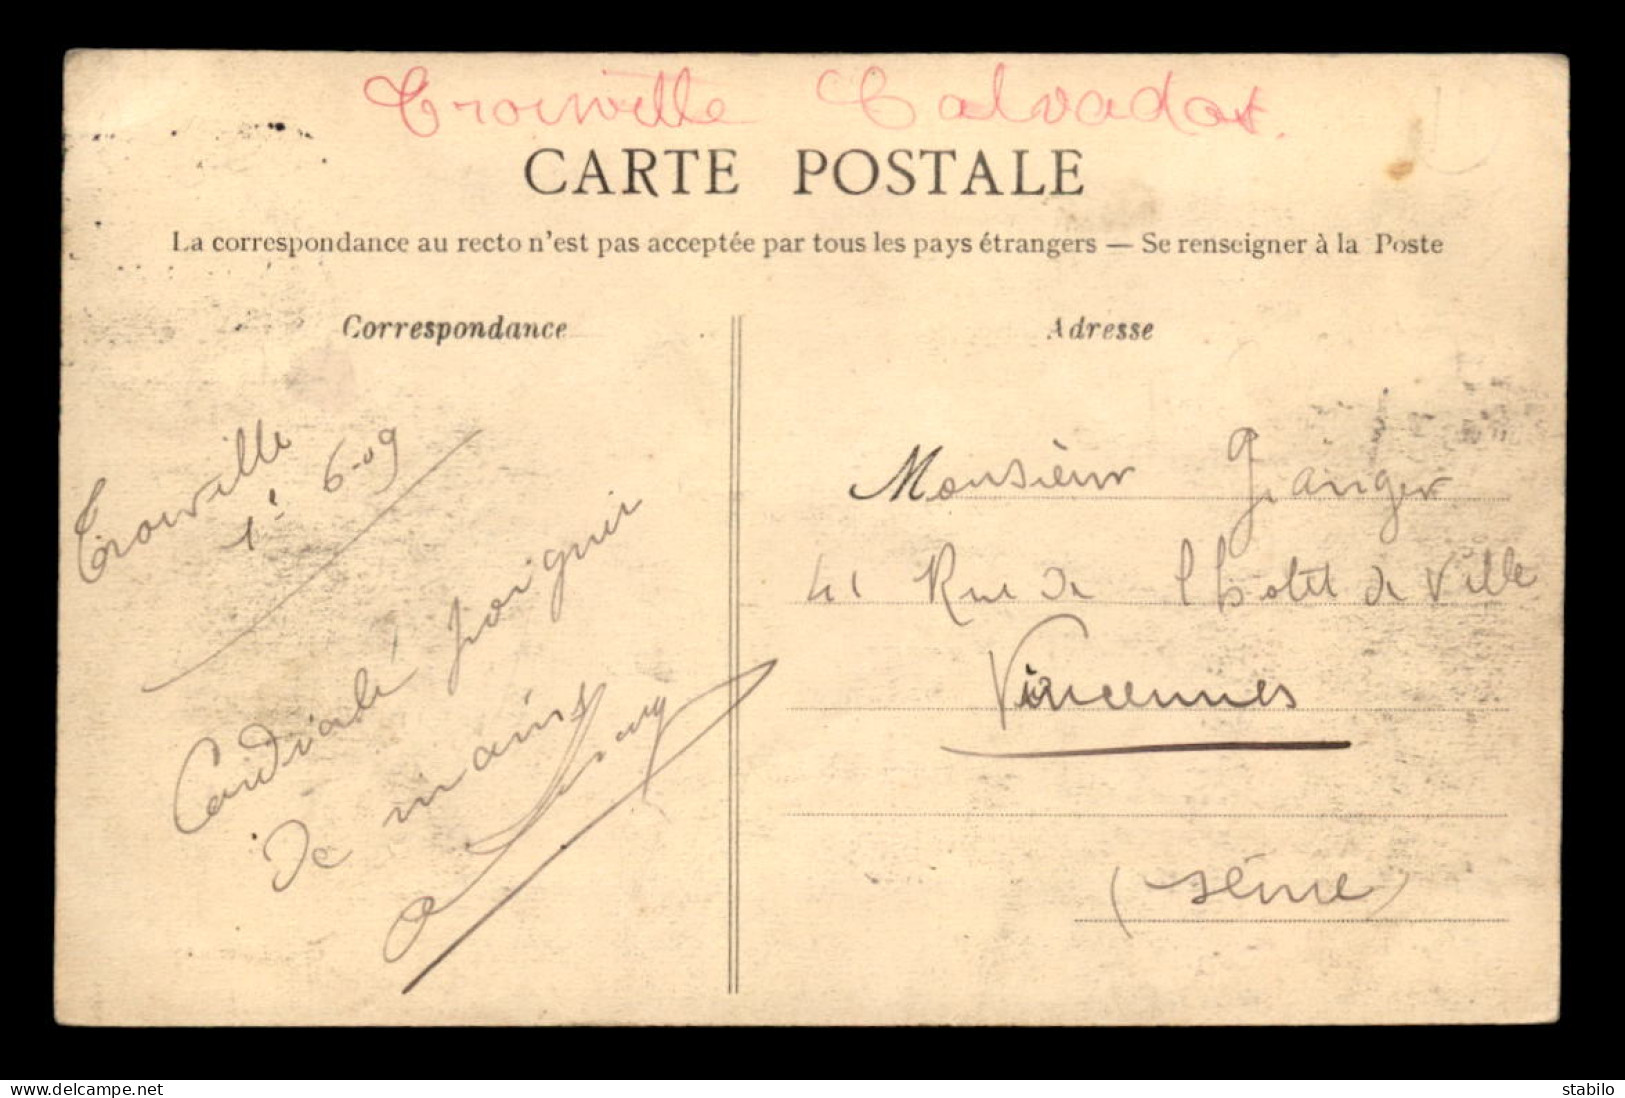 Trouville Calvados.
CARTE POSTALE
La correspondance au recto n'est pas acceptée par tous les pays étrangers — Se renseigner à la Poste
Correspondance
Trouville
1r 6-09
Cordiale poignée
de mains
Adresse
Monsieur Granger
41 Rue de l'hotel de Ville
Vincennes
(Seine)
delcampe.net
stabilo